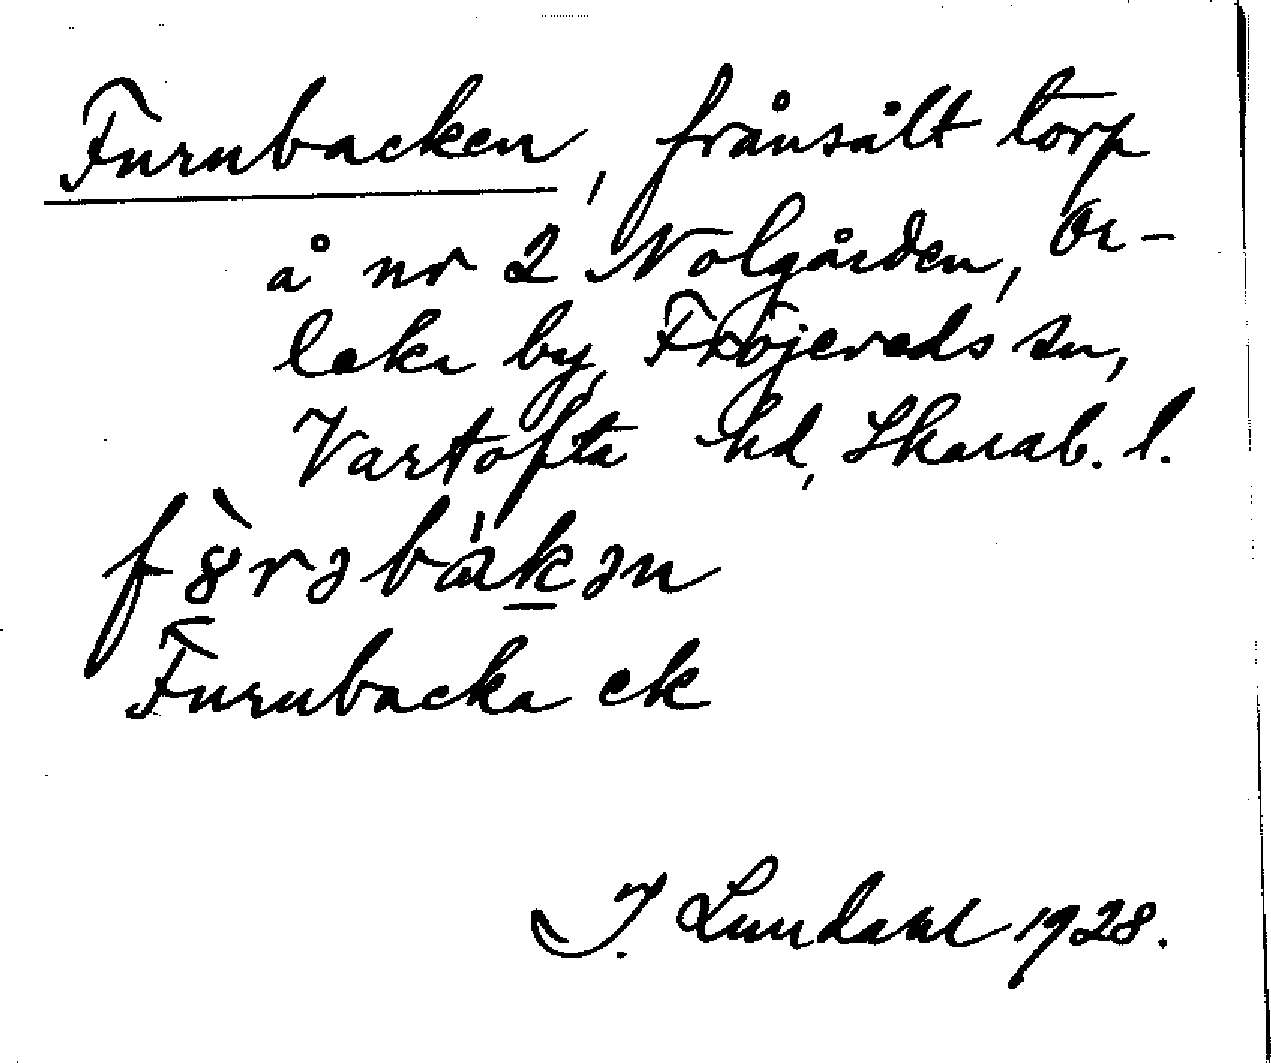 Furubacken, frånsålt torp
å nr 2 Nolgården, Or-
leka by, Fröjereds sn,
Vartofta hd, Skarab. l.
f8̀rəbákən
Furubacka ek
I. Lundahl 1928.